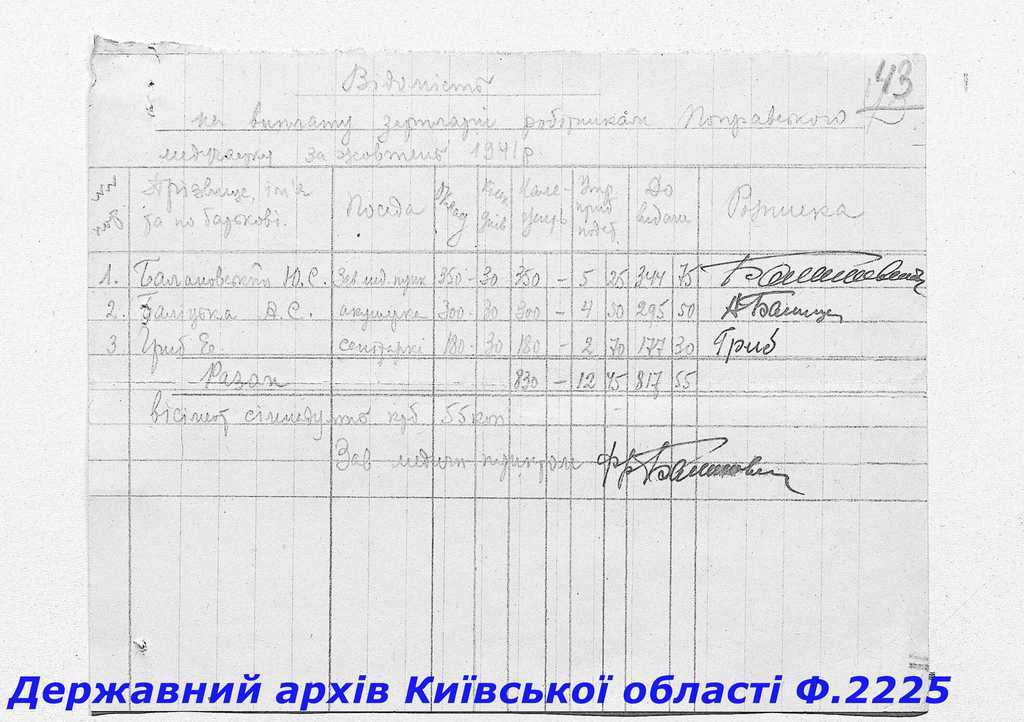 43
Відомість
на виплату зарплати робітникам Поправського
медпункту за жовтень 1941 р.
Прізвище, ім'я та по батькові. Посада Оклад Кільк днів Нале-жить Утр. приб. подат. До видачі Розписка
1. Балановський Ю.С. Зав мед. пунк 350 - 30 350 - 5 25 344 75
2. Баліцька А.С. акушерка 300 - 30 300 - 4 50 295 50
3 Гриб Є. санітарка 180 - 30 180 - 2 70 177 30 Гриб
Разом 830 - 12 45 817 55
вісімсот сімнадцять крб. 55 коп
Зав медичн пунктом
Державний архів Київської області Ф.2225